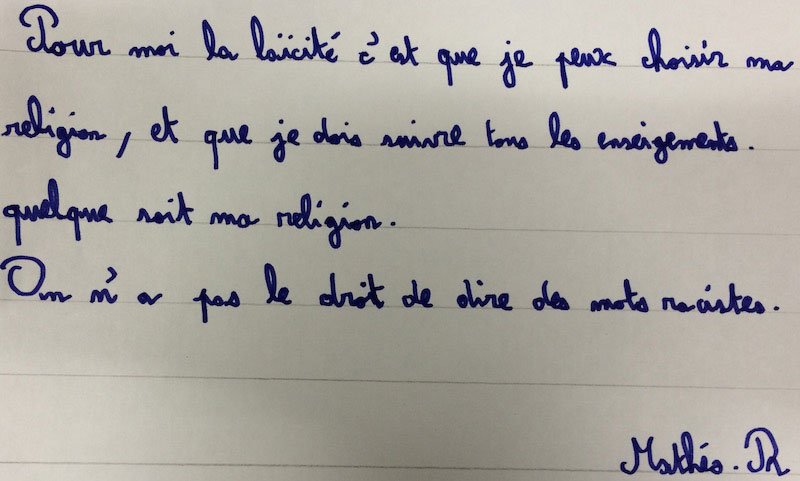 Pour moi la laïcité c'est que je peux choisir ma
religion, et que je dois suivre tous les enseigements.
quelque soit ma religion.
On n'a pas le droit de dire des mots racistes.
Mathéo. R